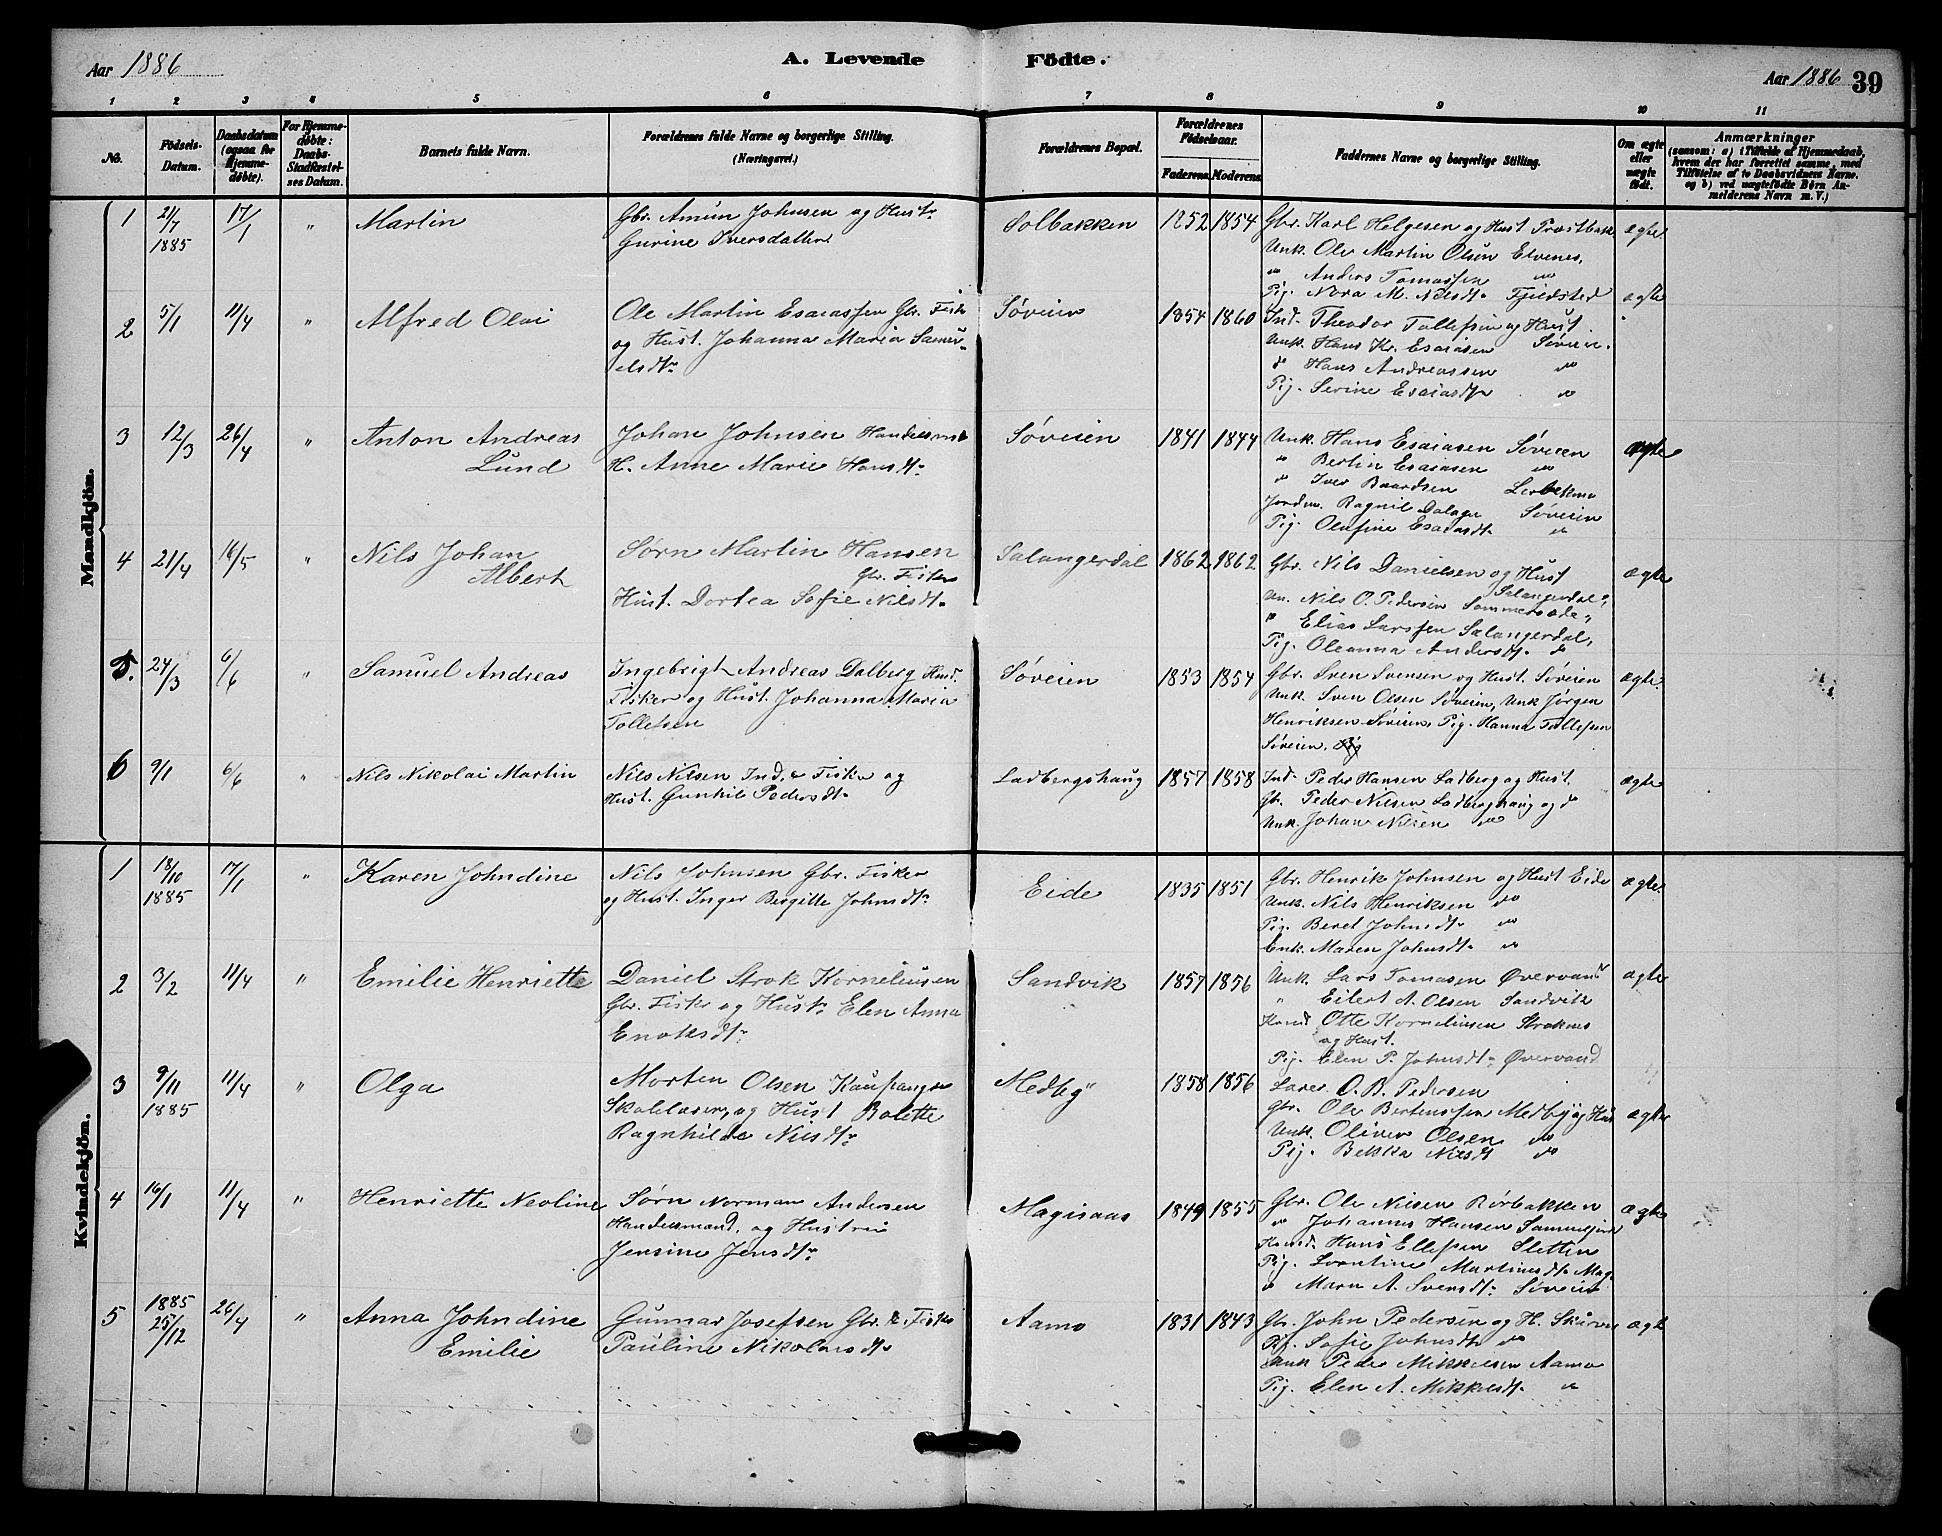 Aar 1886
A. Levende Födte.
Aar 1886 39
1 2 3 4 5 6 7 8 9 10 11
No.
Födsels-Datum.
Daabsdatum (ogsaa for Hjemme-døbte).
For Hjemme-døbte: Daabs-Stadfæstelses Datum.
Barnets fulde Navn.
Forældrenes fulde Navne og borgerlige Stilling. (Næringsvei.)
Forældrenes Bopæl.
Forældrenes Födselsaar.
Faderens. Moderens.
Faddernes Navne og borgerlige Stilling.
Om ægte eller uægte födt.
Anmærkninger
(saasom: a) i Tilfælde af Hjemmedaab, hvem der har forrettet samme, med Tilföielse af to Daabsvidners Navne. og b) ved uægtefödte Börn Anmelderens Navn m. V.)
Mandkjön.
1 21/7 1885 17/1 " Martin
Gbr. Amun Johnsen og Hustr.
Gurine Iversdatter
Solbakken 1852 1854
Gbr. Karl Helgesen og Hust Træstbak
Unk. Ole Martin Olsen Elvenes,
" Anders Tomassen "
Pig. Nora M. Nilsdt. Fjeldsted
ægte
2 5/1 11/4 " Alfred Olai
Ole Martin Esaiassen Gbr. Fisker
og Hust. Johanna Maria Samu-
elsdtr
Søveien 1854 1860
Ind. Theodor Tollefsen og Hust.
Unk. Hans Kr. Esaiasen Søveien.
d Hans Andreassen "
Pig. Serine Esaiasdtr "
ægte
3 12/3 26/4 " Anton Andreas
Lund
Johan Johnsen Handelsmd
H. Anne Marie Hansdt.
Søveien 1841 1844
Unk. Hans Esaiasen Søveien
" Bertin Esaiasen "
" Iver Baardsen
Jordm. Ragnil Dalager Søveien
Pig. Olufine Esaiasdt. "
ægte
4 21/4 16/5 " Nils Johan
Albert
Sørn Martin Hansen
Gbr. Fisker
Hust. Dortea Sofie Nilsdt.
Salangerdal 1862 1862
Gbr. Nils Danielsen og Hust
Salangerdal,
Un. Nils O. Pedersen Sommersæde,
" Elias Larssen Salangerdal,
Pig. Oleanna Andersdt. d
ægte
5. 24/3 6/6 " Samuel Andreas
Ingebrigt Andreas Dalberg Husd.
Fisker og Hust. Johanna Maria
Tollefsen
Søveien 1853 1854
Gbr. Sven Svensen og Hust. Søveien
Unk. Sven Olsen Søveien, Unk Jørgen
Henriksen Søveien, Pig. Hanna Tollefsen
Søveien.
ægte.
6 9/1 6/6 " Nils Nikolai Martin
Nils Nilsen Ind. & Fisker og
Hust. Gunhil Pedersdt.
Ladbergshaug 1857 1858
Ind. Peder Hansen Ladberg og Hust.
Gbr. Peder Nilsen Ladberghaug og do
Unk. Johan Nilsen "
ægte
Kvindekjön.
1 18/10 1885 17/1 " Karen Johndine
Nils Johnsen Gbr. Fisker
og Hust. Inger Bergitte Johnsdtr
Eide 1835 1851
Gbr. Henrik Johnsen og Hust Eide
Unk. Nils Henriksen "
Pig. Beret Johnsdt. "
Enk. Maren Johnsdt. "
ægte
2 3/2 11/4 " Emilie Henriette
Daniel Strok Kornelius­en
Gbr. Fisker og Hustr. Elen Anna
Enoksdtr
Sandvik 1857 1856
Unk. Lars Tomasen Øvervand
" Eilert A. Olsen Sandvik
Otte Korneliusen Stroknes
og Hust.
Pig. Elen P. Johnsdt. Øvervand
ægte
3 9/11 1885 11/4 " Olga
Morten Olsen Kaupanger
Skolelærer, og Hust Bolette
Ragnhilde Nilsdtr
Medby 1858 1856
Lærer O. B. Pedersen
Gbr. Ole Bertenssen Medby og Hus
Unk. Oliver Olsen "
Pig. Bekka Nilsdt "
ægte
4 16/1 11/4 " Henriette Neoline
Sørn Norman Andersen
Handelsmand, og Hustru
Jensine Jensdtr
Magisaas 1849 1855
Gbr. Ole Nilsen Rörbakken
" Johannes Hansen
Hans Ellefsen Sletten
Pig. Lorntine Martinusdt. Mag.
" Marn A. Svensdt. Søveien
ægte
5 1885 25/12 26/4 " Anna Johndine
Emilie
Gunnar Josefsen Gbr. & Fisker
Pauline Nikolaisdt.
Aamo 1831 1843
Gbr. John Pedersen og H. Skårven
Pg. Sofie Johnsdt. "
Unk Peder Mikkelsen Aamo
Pig. Elen A. Mikkelsdt. "
ægte